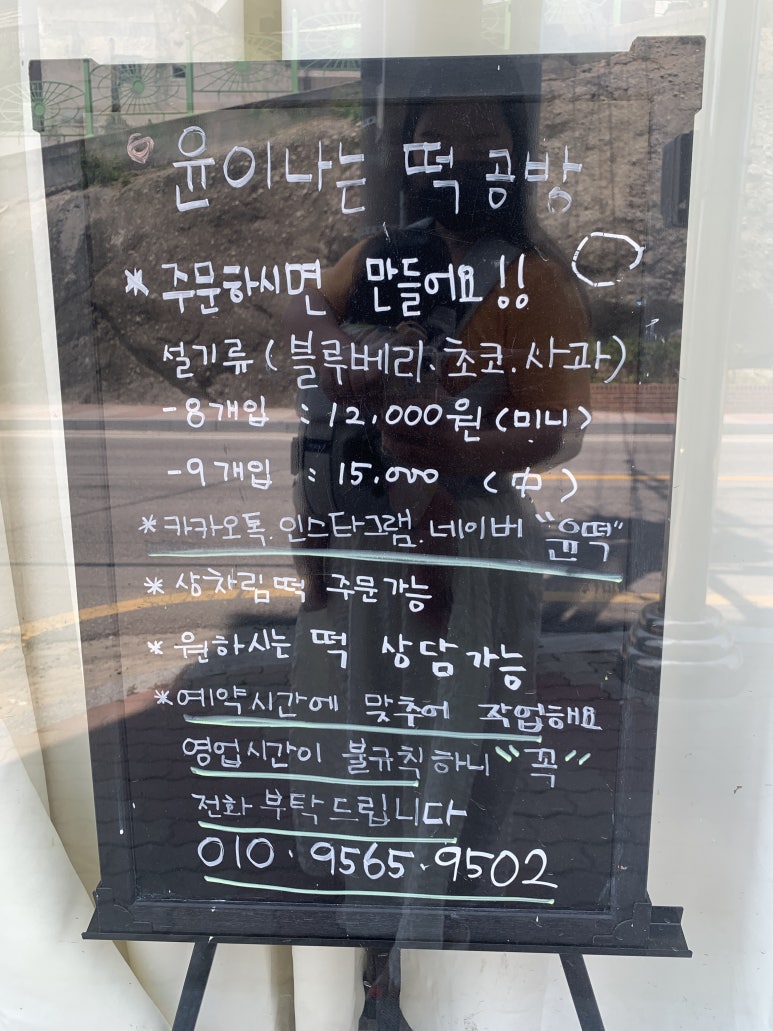 윤이나는 떡 공방
* 주문하시면 만들어요!!
설기류 (블루베리.초코.사과)
-8개입 : 12,000원 (미니)
-9개입 : 15.000 (中)
*카카오톡.인스타그램.네이버 "윤떡"
* 상차림떡 주문가능
* 원하시는 떡 상담가능
*예약시간에 맞추어 작업해요
영업시간이 불규칙하니 "꼭"
전화 부탁드립니다
010.9565.9502